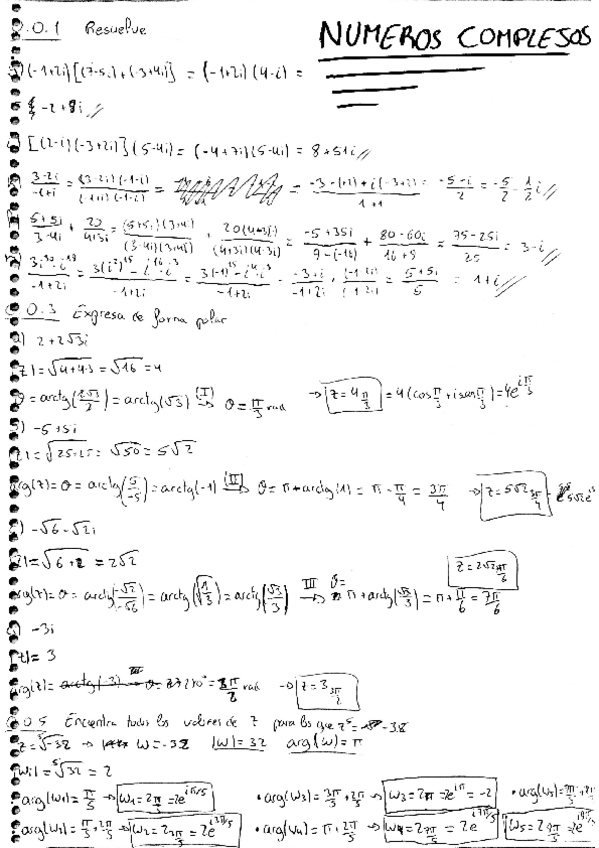 O.1 Resuelve
NUMEROS COMPLEJOS
(-1+2i)[(7-5i)+(-3+4i)] = (-1+2i)(4-i) =
-2+9i
[(2-i)(-3+2i)](5-4i) = (-4+7i)(5-4i) = 8+51i
3-2i/-1+i = (3-2i)(-1-i)/(-1+i)(-1-i) = -3-(+2)+i(-3+2)/1+1 = -5-i/2 = -5/2 - 1/2 i
5+5i/3-4i + 20/4+3i = (5+5i)(3+4i)/(3-4i)(3+4i) + 20(4-3i)/(4+3i)(4-3i) = -5+35i/9-(-16) + 80-60i/16+9 = 75-25i/25 = 3-i
-1+2i = 3(i²)¹⁵ - i¹⁶·i³/-1+2i = -1+2i = -3+i/-1+2i = 5+5i/5 = 1+i
O.3 Expresa de forma polar
a) 2+2√3i
|z| = √4+4·3 = √16 = 4
θ = arctg(2√3/2) = arctg(√3) (I) → θ = π/3 rad → z = 4 π/3 = 4(cos π/3 + i sen π/3) = 4e^iπ/3
) -5+5i
= √50 = 5√2
arg(z) = θ = arctg(5/-5) = arctg(-1) (II) → θ = π + arctg(-1) = π - π/4 = 3π/4 → z = 5√2 3π/4
) -√6-√2i
|z| = √6+2 = 2√2
arg(z) = θ = arctg(-√2/-√6) = arctg(√1/3) = arctg(√3/3) III → θ = π + arctg(√3/3) = π + π/6 = 7π/6
) -3i
|z| = 3
arg(z) = 270° = 3π/2 rad → z = 3 3π/2
O.5 Encuentra todos los valores de z para los que z⁵ = -32
z = ⁵√-32 → w = -32 |w| = 32 arg(w) = π
|wi| = ⁵√32 = 2
• arg(w₁) = π/5 → w₁ = 2 π/5 = 2e^iπ/5
• arg(w₃) = 3π/5 + 2π/5 → w₃ = 2π = 2e^iπ = -2
• arg(w₂) = π/5 + 2π/5 → w₂ = 2 3π/5 = 2e^i3π/5
• arg(w₄) = π + 2π/5 → w₄ = 2 7π/5 = 2e^i7π/5
w₅ = 2 9π/5 = 2e^i9π/5